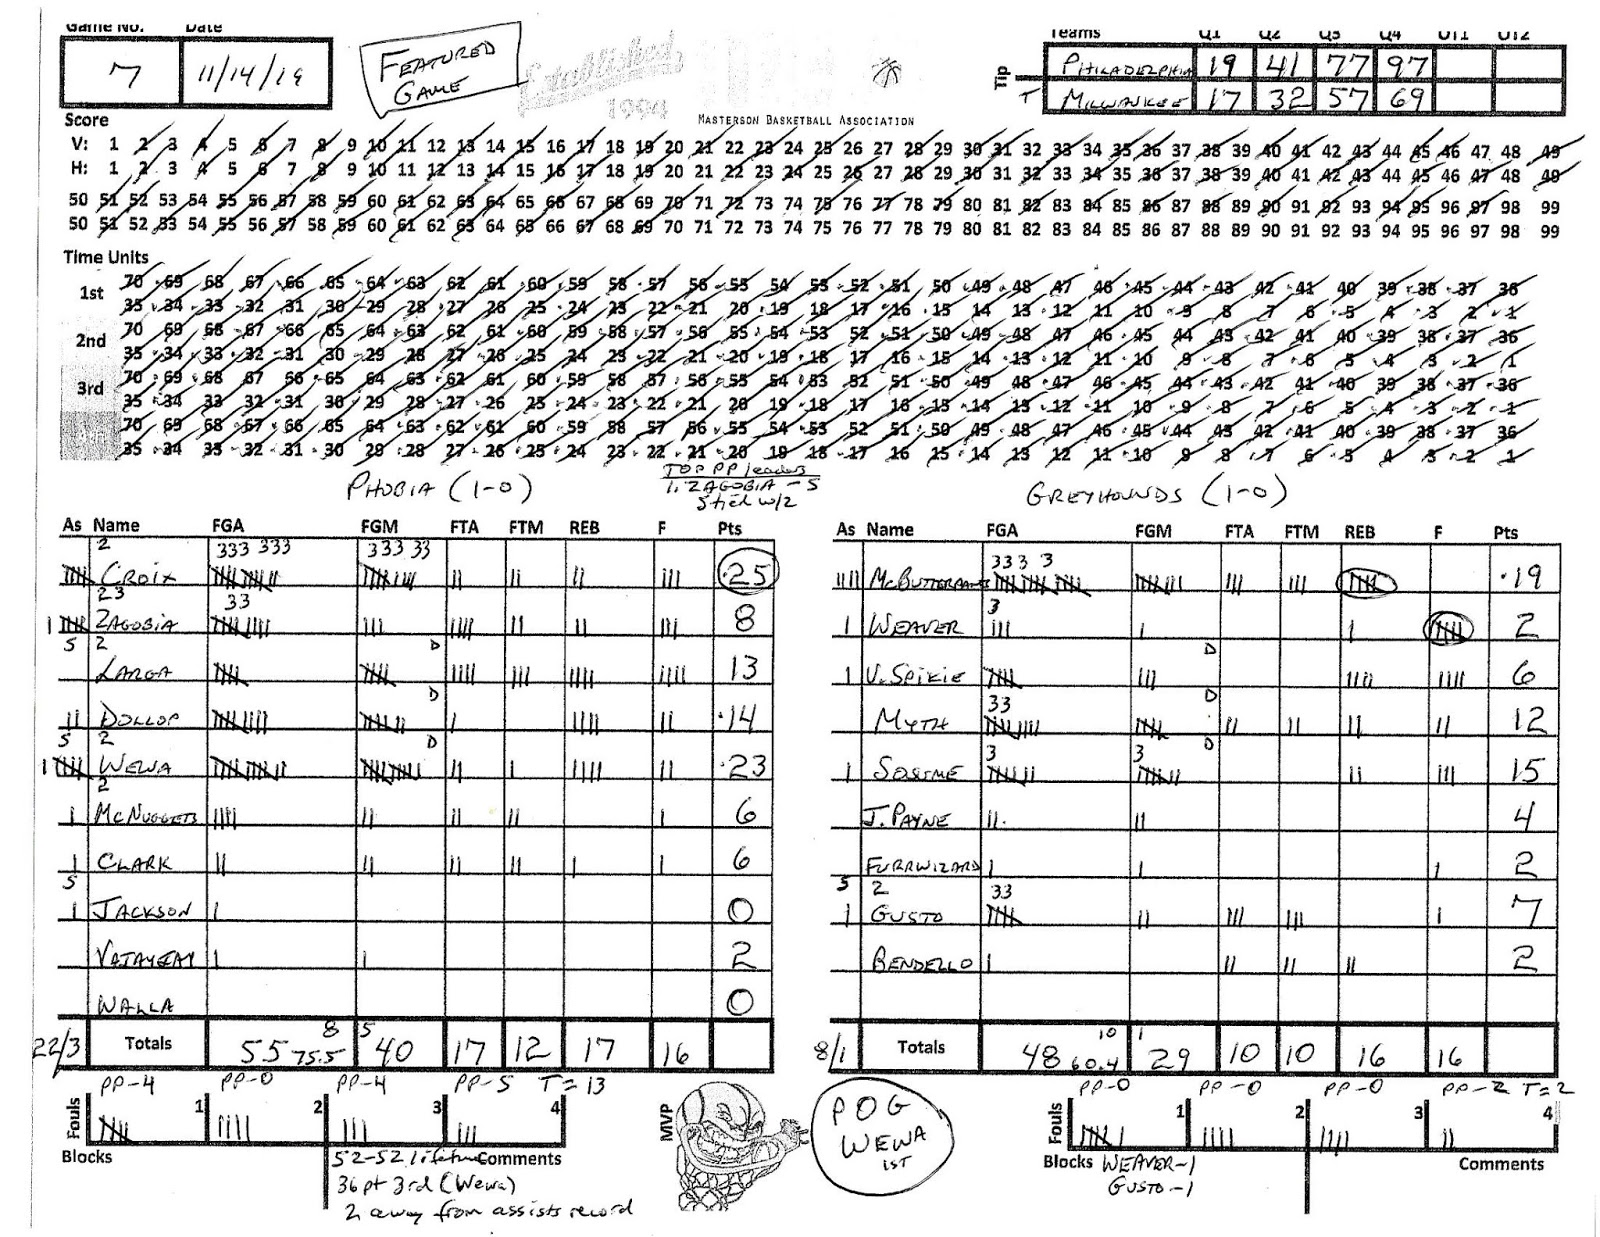 Game No. Date
7 11/14/19
FEATURED GAME
Established 1994
MASTERSON BASKETBALL ASSOCIATION
Tip Teams Q1 Q2 Q3 Q4 OT1 OT2
PHILADELPHIA 19 41 77 97
T MILWAUKEE 17 32 57 69
Score
V: 1 2 3 4 5 6 7 8 9 10 11 12 13 14 15 16 17 18 19 20 21 22 23 24 25 26 27 28 29 30 31 32 33 34 35 36 37 38 39 40 41 42 43 44 45 46 47 48 49
H: 1 2 3 4 5 6 7 8 9 10 11 12 13 14 15 16 17 18 19 20 21 22 23 24 25 26 27 28 29 30 31 32 33 34 35 36 37 38 39 40 41 42 43 44 45 46 47 48 49
50 51 52 53 54 55 56 57 58 59 60 61 62 63 64 65 66 67 68 69 70 71 72 73 74 75 76 77 78 79 80 81 82 83 84 85 86 87 88 89 90 91 92 93 94 95 96 97 98 99
50 51 52 53 54 55 56 57 58 59 60 61 62 63 64 65 66 67 68 69 70 71 72 73 74 75 76 77 78 79 80 81 82 83 84 85 86 87 88 89 90 91 92 93 94 95 96 97 98 99
Time Units
1st
70 69 68 67 66 65 64 63 62 61 60 59 58 57 56 55 54 53 52 51 50 49 48 47 46 45 44 43 42 41 40 39 38 37 36
35 34 33 32 31 30 29 28 27 26 25 24 23 22 21 20 19 18 17 16 15 14 13 12 11 10 9 8 7 6 5 4 3 2 1
2nd
70 69 68 67 66 65 64 63 62 61 60 59 58 57 56 55 54 53 52 51 50 49 48 47 46 45 44 43 42 41 40 39 38 37 36
35 34 33 32 31 30 29 28 27 26 25 24 23 22 21 20 19 18 17 16 15 14 13 12 11 10 9 8 7 6 5 4 3 2 1
3rd
70 69 68 67 66 65 64 63 62 61 60 59 58 57 56 55 54 53 52 51 50 49 48 47 46 45 44 43 42 41 40 39 38 37 36
35 34 33 32 31 30 29 28 27 26 25 24 23 22 21 20 19 18 17 16 15 14 13 12 11 10 9 8 7 6 5 4 3 2 1
70 69 68 67 66 65 64 63 62 61 60 59 58 57 56 55 54 53 52 51 50 49 48 47 46 45 44 43 42 41 40 39 38 37 36
35 34 33 32 31 30 29 28 27 26 25 24 23 22 21 20 19 18 17 16 15 14 13 12 11 10 9 8 7 6 5 4 3 2 1
TOP PP leaders
1. ZAGOBIA - 5
5 tied w/2
PHOBIA (1-0)
As Name FGA FGM FTA FTM REB F Pts
2 333 333 333 33
CROIX 25
23 33
ZAGOBIA 8
5 2 D
LARGA 13
D
DOLLOP 14
5 2 D
WEWA 23
2
McNUGGETS 6
CLARK 6
5
JACKSON 0
VATAYEAY 2
WALLA 0
22/3 Totals 55 8 75.5 5 40 17 12 17 16
PP-4 PP-0 PP-4 PP-5 T=13
Fouls 1 2 3 4
Blocks Comments
52-52 lifetime
36 pt 3rd (Wewa)
2 away from assists record
MVP
POG
WEWA
1ST
GREYHOUNDS (1-0)
As Name FGA FGM FTA FTM REB F Pts
333 3
McBUTTERPANTS 19
3
WEAVER 2
D
V. SPIKIE 6
33 D
MYTH 12
3 3 D
SOSIME 15
J. PAYNE 4
FURRWIZARD 2
5 2 33
GUSTO 7
BENDELLO 2
8/1 Totals 48 10 60.4 1 29 10 10 16 16
PP-0 PP-0 PP-0 PP-2 T=2
Fouls 1 2 3 4
Blocks WEAVER-1
GUSTO-1
Comments